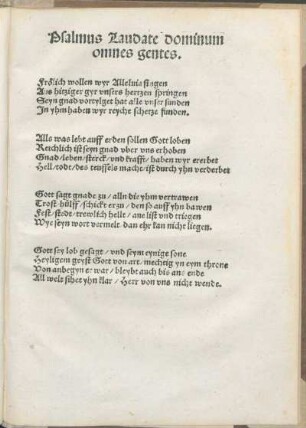 Psalmus Laudate dominum
omnes gentes.
Frölich wollen wyr Alleluia singen
Aus hitziger gyr vnsers hertzen springen
Seyn gnad vortylget hat alle vnser sunden
In yhm haben wyr reyche schetze funden.
Alls was lebt auff erden sollen Gott loben
Reichlich ist seyn gnad vber vns erhoben
Gnad / leben / sterck / vnd krafft / haben wyr ererbet
Hell / todt / des teuffels macht / ist durch yhn verderbet
Gott sagt gnade zu / alln die yhm vertrawen
Trost hülff / schickt er zu / den so auff yhn bawen
Fest / stedt / trewlich helle / ane list vnd triegen
Wye seyn wort vormelt, dan ehr kan nicht liegen.
Gott sey lob gesagt / vnd seym eynige sone
Heyligem geyst Gott von art / mechtig yn eym throne
Von anbegyn er war / bleybt auch bis ans ende
All welt sihet yhn klar / Herr von vns nicht wende.